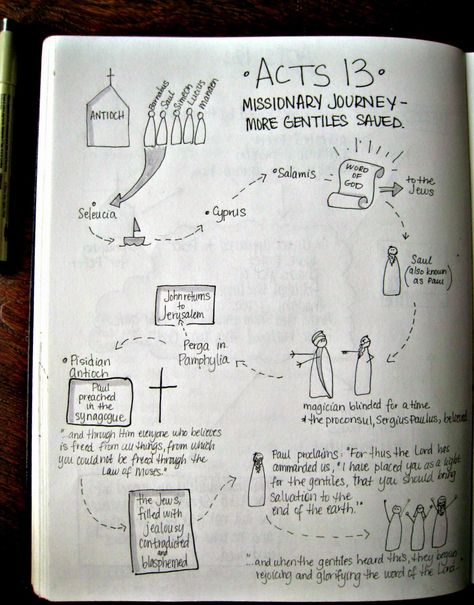 • ACTS 13 •
MISSIONARY JOURNEY -
MORE GENTILES SAVED.
ANTIOCH
Barnabus
Saul
Simeon
Lucius
manaen
Seleucia
Cyprus
Salamis
WORD
OF
GOD
to the
Jews
Saul
(also known
as Paul)
magician blinded for a time
& the proconsul, Sergius Paulus, believed
Perga in
Pamphylia
John returns
to
Jerusalem
Pisidian
Antioch
Paul
preached
in the
synagogue
"...and through Him everyone who believes
is freed from all things, from which
you could not be freed through the
Law of Moses."
the Jews,
filled with
jealousy
contradicted
and
blasphemed
Paul proclaims: "For thus the Lord has
commanded us, "I have placed you as a light
for the gentiles, that you should bring
salvation to the
end of the earth.""
"...and when the gentiles heard this, they began
rejoicing and glorifying the word of the Lord..."